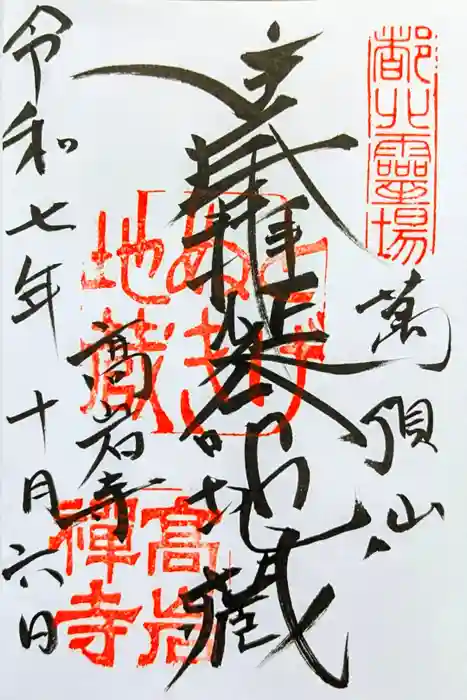 都北靈場
萬頂山
地蔵
とげ
ぬき
地蔵
高岩寺
高岩
禪寺
令和七年十月六日